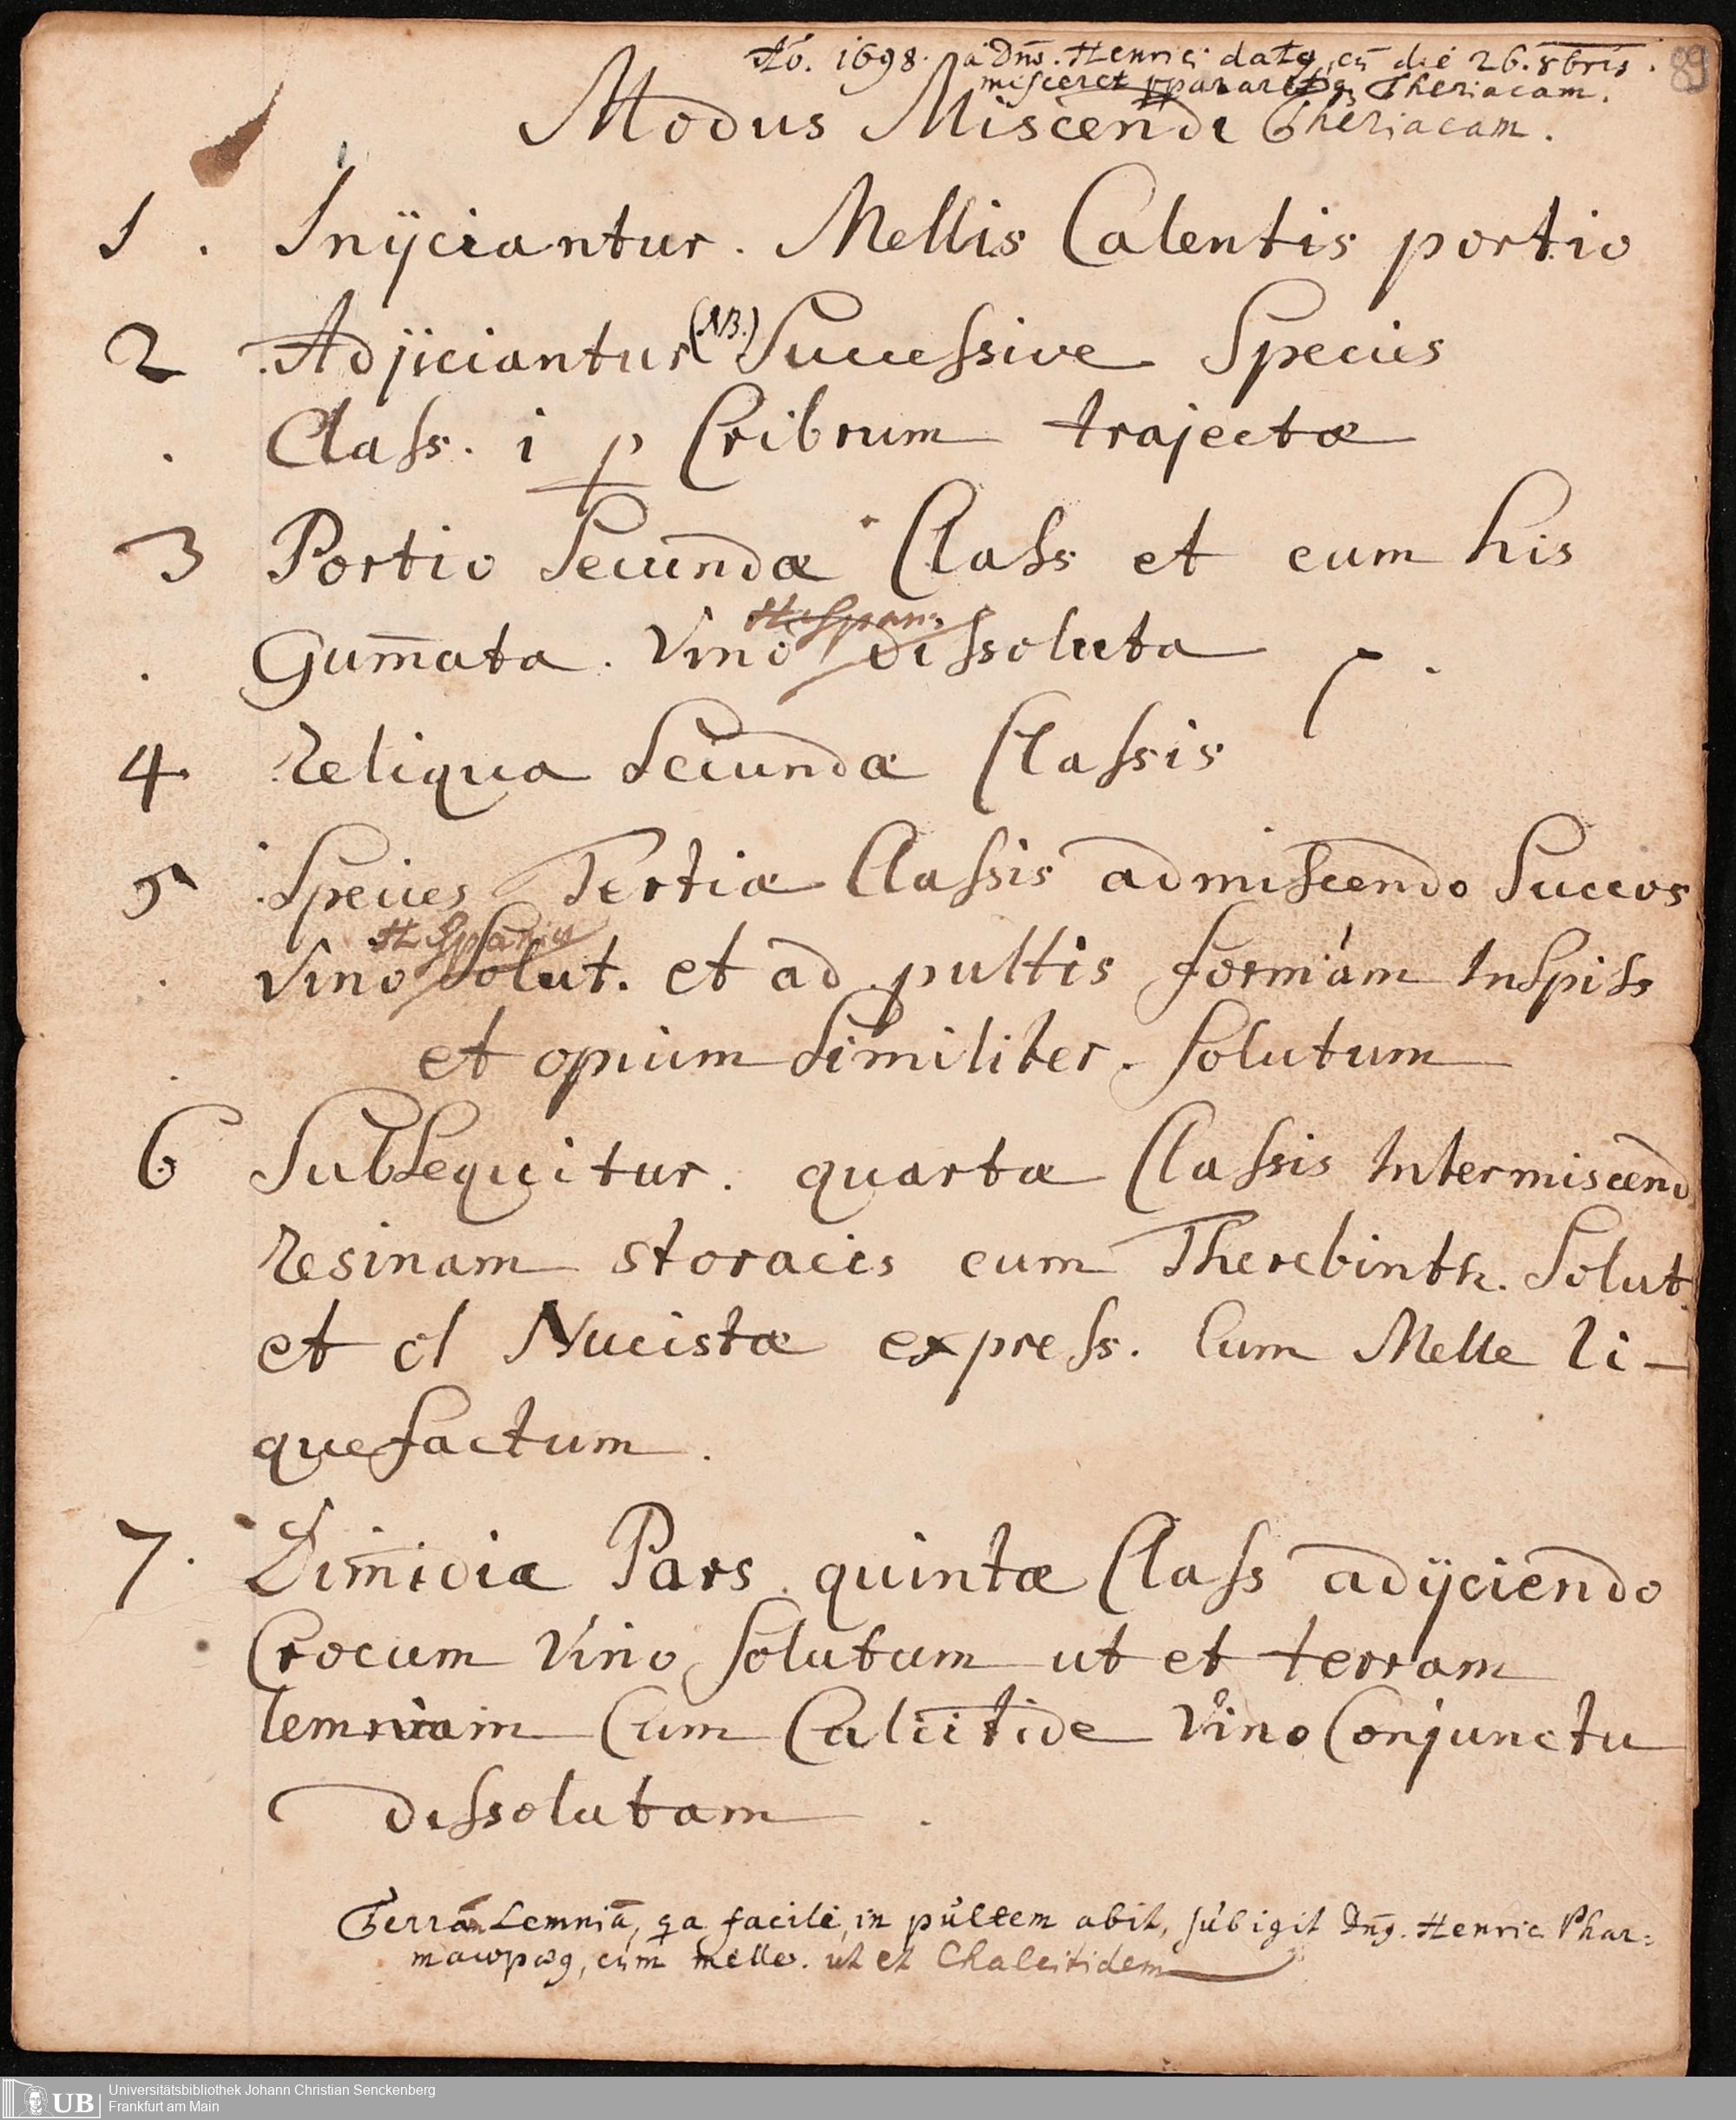 Ao. 1698. a Dno. Henrici datq, cū die 26. 8bris.
misceret ppararetq Theriacam.
89
Modus Miscendi Theriacam.
1. Inÿciantur. Mellis Calentis portio
2 Adjiciantur (NB.) Successive Species
Class. i p Cribrum trajectæ
3 Portio Secundæ Class et cum his
Hispan:
Gum̄ata. Vino dissoluta
4. Reliqua Secundæ Classis
5 Species Tertiæ Classis admiscendo Succos
Hispanic
Vino Solut. et ad pultis formam Inspiss
et opium Similiter. Solutum
6 Subsequitur. quartæ Classis Intermiscend
Resinam storacis cum Therebinth. Solut.
et ol Nucistæ express. Cum Melle li-
quefactum.
7. Dim̄idia Pars quintæ Class adÿciendo
Crocum Vino Solutum ut et terram
lemniam Cum Calcitide Vino Conjunctu
dissolutam.
Terram Lemniā, qa facile, in pultem abit, subigit Dnq. Henrici Phar=
macopæq, cum melle. ut et Chalcitidem
UB
Universitätsbibliothek Johann Christian Senckenberg
Frankfurt am Main